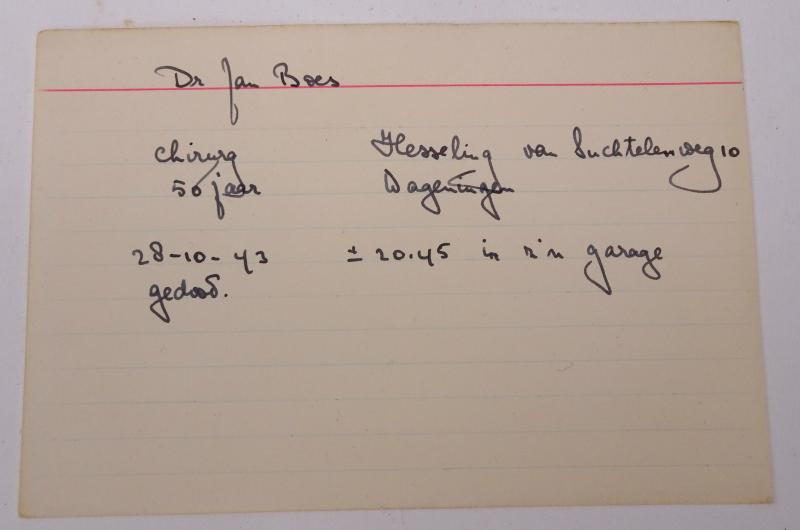 Dr Jan Boes
chirurg Hesseling van Suchtelenweg 10
50 jaar Wageningen
28-10-43 ± 20.45 in z'n garage
gedood.